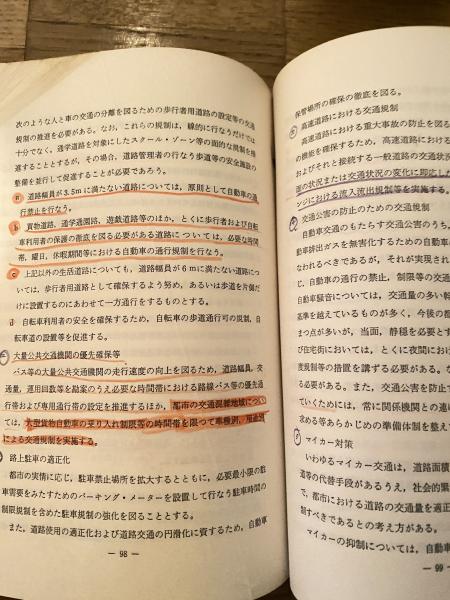 次のような人と車の交通の分離を図るための歩行者用道路の設定等の交通
規制の推進を必要がある。なお、これらの規制は、線的に行なうだけでは
十分でなく、通学道路を対象にしたスクール・ゾーン等の面的な規制を推
進することとするが、その場合、道路管理者の行なう歩道等の安全施設の
整備を並行して促進することが必要であろう。
a 道路幅員が3.5mに満たない道路については、原則として自動車の通
行禁止を行なう。
b 買物道路、通学通園路、遊戯道路等のほか、とくに歩行者および自転
車利用者の保護の徹底を図る必要がある道路については、必要な時間
帯、曜日、休暇期間等における自動車の通行規制を行なう。
c 上記以外の生活道路についても、道路幅員が6mに満たない道路につ
いては、歩行者用道路として確保するよう努め、あるいは歩道を片側だ
けに設置するのにあわせて一方通行をするものとする。
d 自転車利用者の安全を確保するため、自転車の歩道通行可の規制、自
転車道の設置等を促進する。
大量公共交通機関の優先確保等
バス等の大量公共交通機関の走行速度の向上を図るため、道路幅員、交
通量、運用回数等を勘案のうえ必要な時間帯における路線バス等の優先通
行帯および専用通行帯の設定を推進するほか、都市の交通混雑地域につい
ては、大型貨物自動車の乗り入れ制限等の時間帯を限って車種別、用途別
による交通規制を実施する。
路上駐車の適正化
都市の実情に応じ、駐車禁止場所を拡大するとともに、必要最小限の駐
車需要をみたすためのパーキング・メーターを設置して行なう駐車時間の
制限規制を含めた駐車規制の強化を図ることとする。
また、道路使用の適正化および道路交通の円滑化に資するため、自動車
— 98 —
保管場所の確保の徹底を図る。
高速道路における交通規制
高速道路における重大事故の防止を図る
の機能を確保するため、高速道路におけ
およびそれと接続する一般道路の交通状
面の状況または交通状況の変化に即応した
ンジにおける流入流出規制等を実施する。
交通公害の防止のための交通規制
自動車交通のもたらす交通公害のうち、
車排出ガスを無害化するための自動車の
なわれるべきであるが、それが実現され
じ、自動車の通行の禁止、制限等の交通
自動車騒音については、交通量の多い幹
基準を越えているものが多く、今後の都
つ点が多いが、当面、静穏を必要とす
び住宅街においては、とくに夜間におけ
度規制等の措置を講ずる必要がある。な
ある。また、交通公害を防止す
ていくためには、常に関係機関との連
求める等あらかじめの準備体制を整え
マイカー対策
いわゆるマイカー交通は、道路面積
道等の代替手段があるうえ、社会的累
で、都市における道路の交通量を適正
制すべきであるとの考え方がある。
マイカーの抑制については、自動車
— 99 —